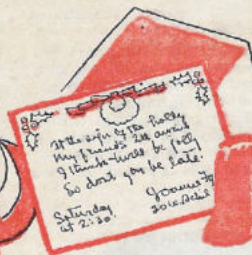 At the sign of the holly
My friends I'll await
I think 'twill be jolly
So don't you be late.
Saturday
at 2:30.
Joanne